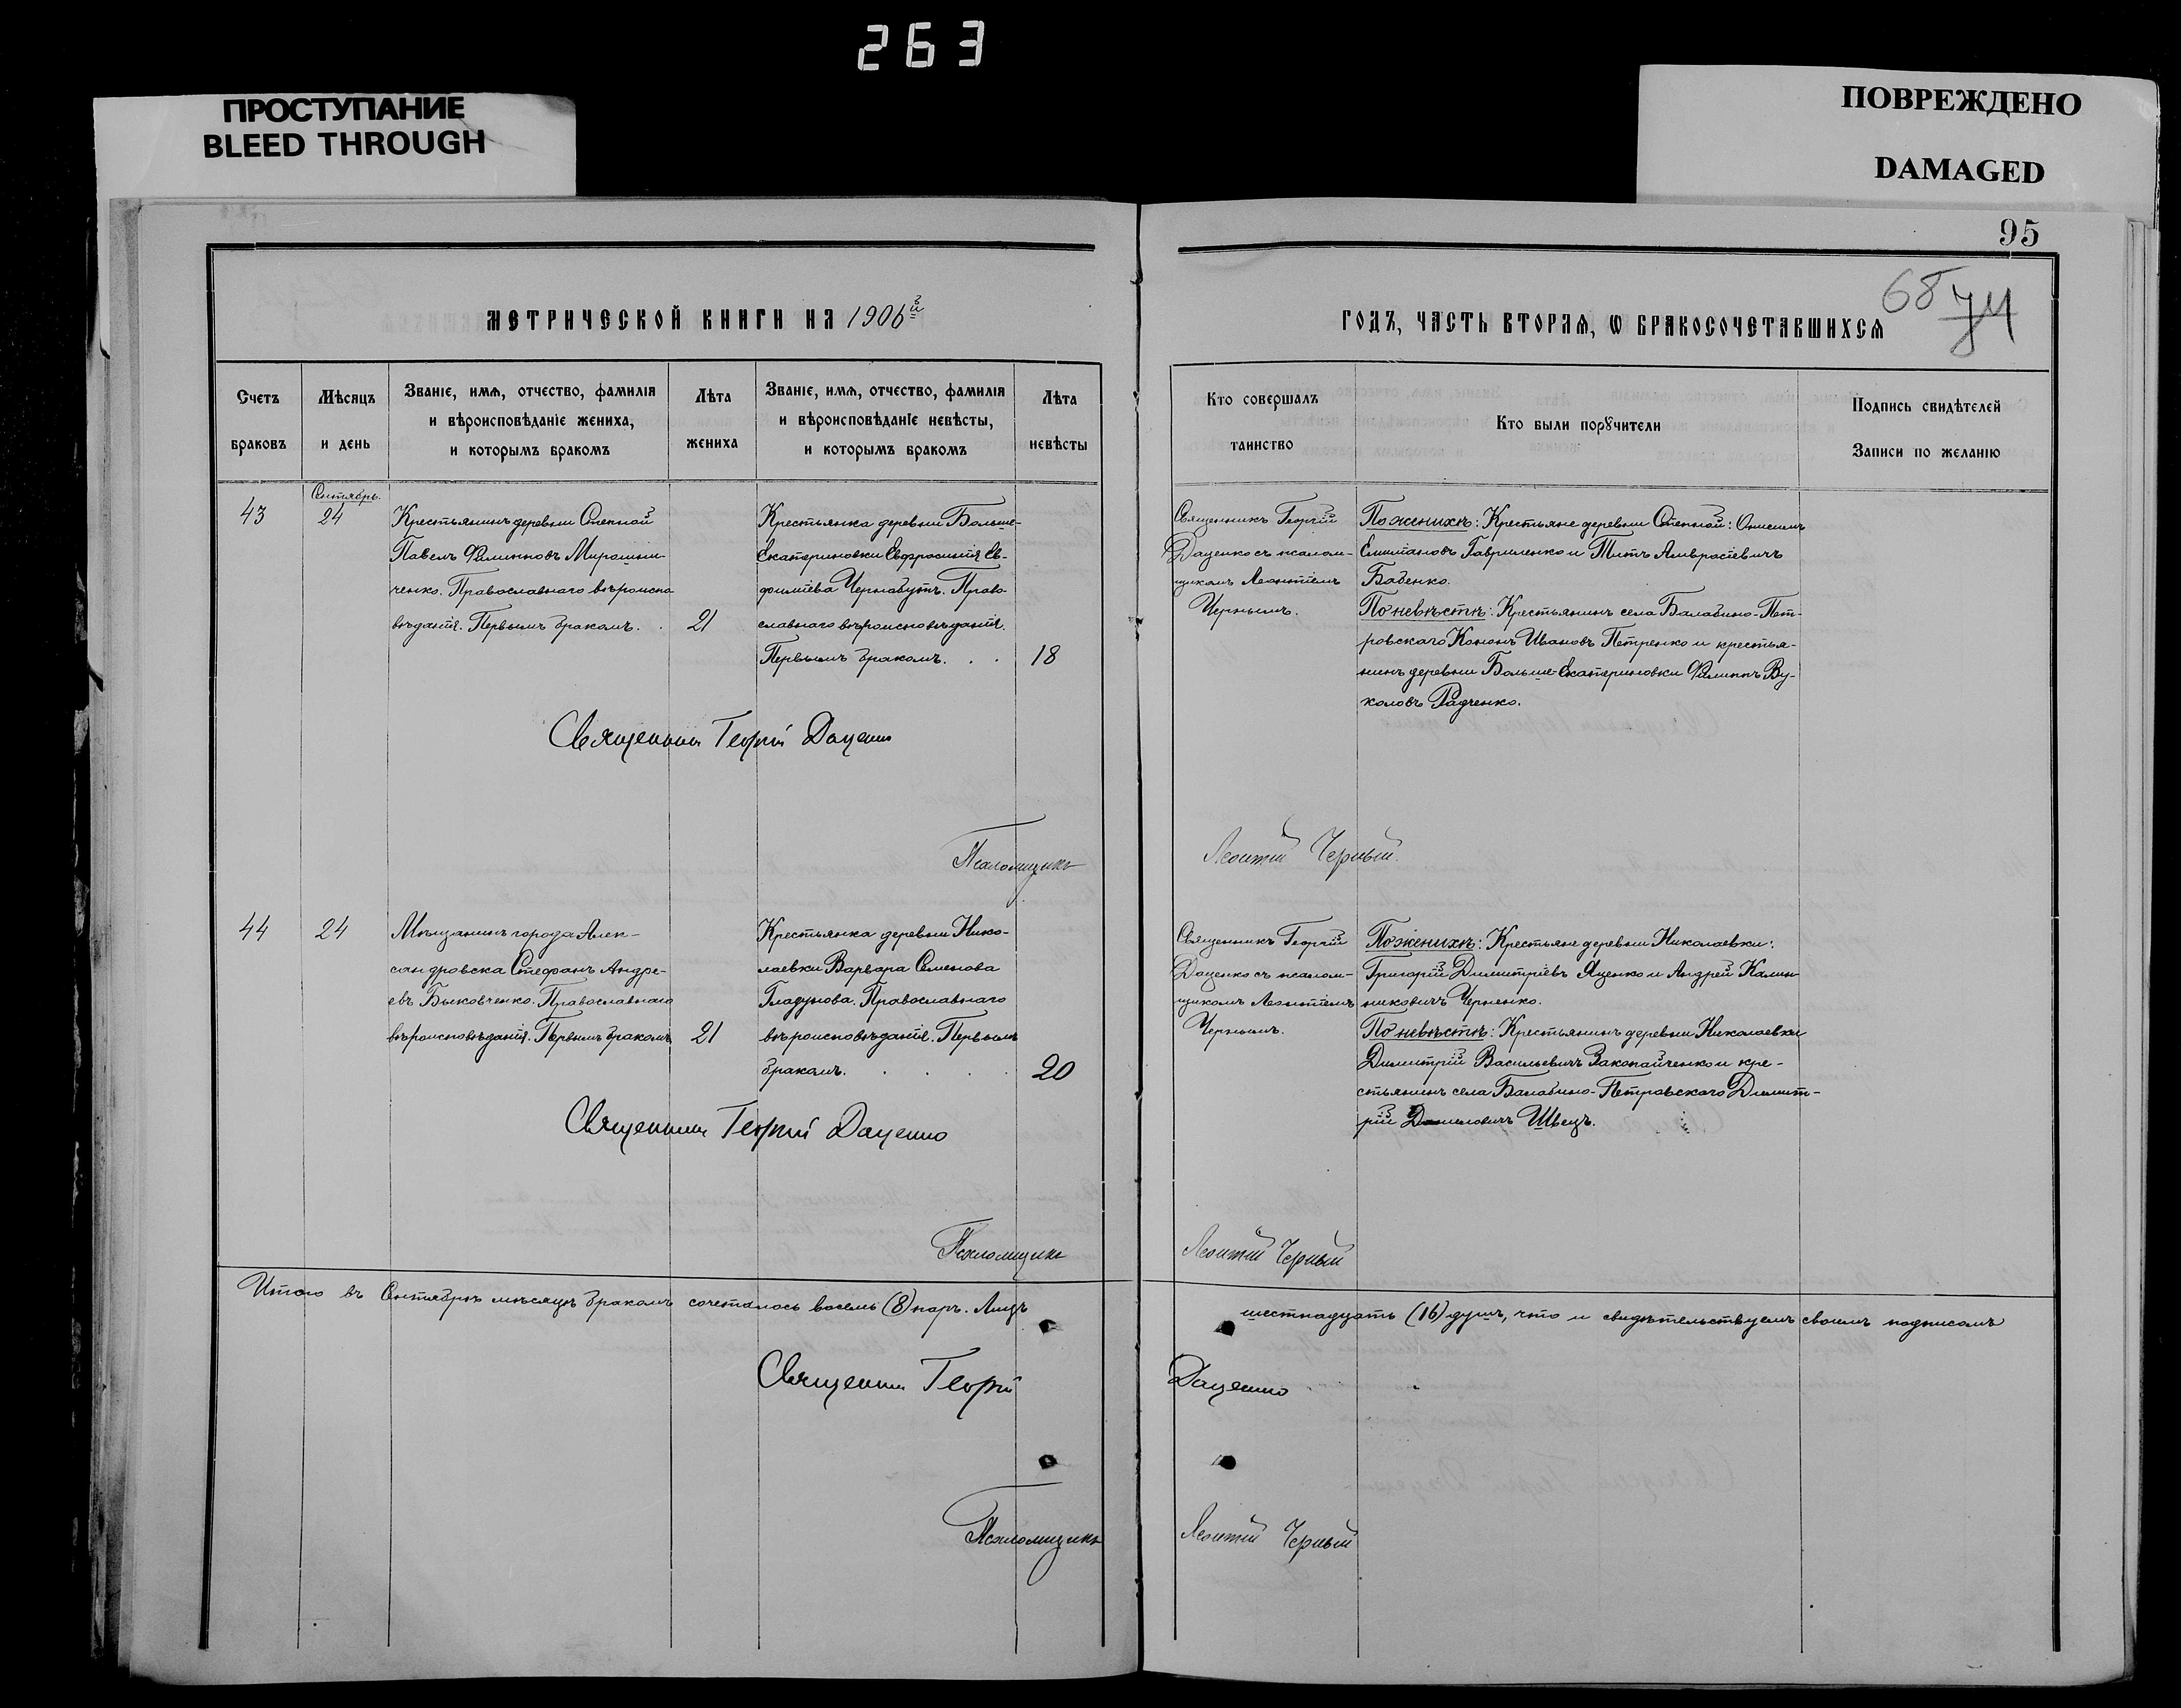 263
ПРОСТУПАНИЕ
BLEED THROUGH
ПОВРЕЖДЕНО
DAMAGED
95
68
74
МЕТРИЧЕСКОЙ КНИГИ НА 1906й
ГОДЪ, ЧАСТЬ ВТОРАЯ, Ѡ БРАКОСОЧЕТАВШИХСЯ
Счетъ браковъ
Мѣсяцъ и день
Званіе, имя, отчество, фамилія
и вѣроисповѣданіе жениха,
и которымъ бракомъ
Лѣта жениха
Званіе, имя, отчество, фамилія
и вѣроисповѣданіе невѣсты,
и которымъ бракомъ
Лѣта невѣсты
Кто совершалъ
таинство
Кто были порꙋчители
Подпись свидѣтелей
Записи по желанію
43
Сентябрь.
24
Крестьянинъ деревни Степной
Павелъ Филипповъ Мирошни-
ченко. Православнаго вѣроиспо
вѣданія. Первымъ бракомъ.
21
Крестьянка деревни Больше-
Екатериновки Евфросинія Ев-
фиміева Чернобутъ. Право
славнаго вѣроисповѣданія.
Первымъ бракомъ.
18
Священникъ Георгій
Даценко съ псалом-
щикомъ Леонтіемъ
Чернымъ.
По женихѣ: Крестьяне деревни Степной: Онисимъ
Емиліановъ Гавриленко и Титъ Амвросіевичъ
Бабенко.
По невѣстѣ: Крестьянинъ села Балабино-Пет-
ровскаго Кононъ Ивановъ Петренко и крестья-
нинъ деревни Больше-Екатериновки Филиппъ Ву-
коловъ Радченко.
Священникъ Георгій Даценко
Псаломщикъ Леонтій Черный.
44
24
Мѣщанинъ города Алек-
сандровска Стефанъ Андре-
евъ Быковченко. Православнаго
вѣроисповѣданія. Первымъ бракомъ
21
Крестьянка деревни Нико-
лаевки Варвара Семенова
Гладунова. Православнаго
вѣроисповѣданія. Первымъ
бракомъ.
20
Священникъ Георгій
Даценко съ псалом-
щикомъ Леонтіемъ
Чернымъ.
По женихѣ: Крестьяне деревни Николаевки:
Григорій Димитріевъ Яценко и Андрей Калин
никовичъ Черненко.
По невѣстѣ: Крестьянинъ деревни Николаевки
Димитрій Васильевичъ Закопайченко и кре-
стьянинъ села Балабино-Петровскаго Димит-
рій Даниловичъ Швецъ.
Священникъ Георгій Даценко
Псаломщикъ Леонтій Черный
Итого въ Сентябрѣ мѣсяцѣ бракомъ сочеталось восемь (8) паръ. Лицъ шестнадцать (16) душъ, что и свидѣтельствуемъ своимъ подписомъ
Священникъ Георгій Даценко
Псаломщикъ Леонтій Черный